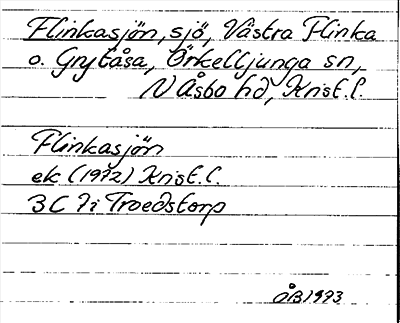 Flinkasjön, sjö, Västra Flinka
o. Grytåsa, Örkelljunga sn,
N Åsbo hd, Krist.l.
Flinkasjön
ek (1972) Krist.l.
3C 7i Troedstorp
ÅB 1993